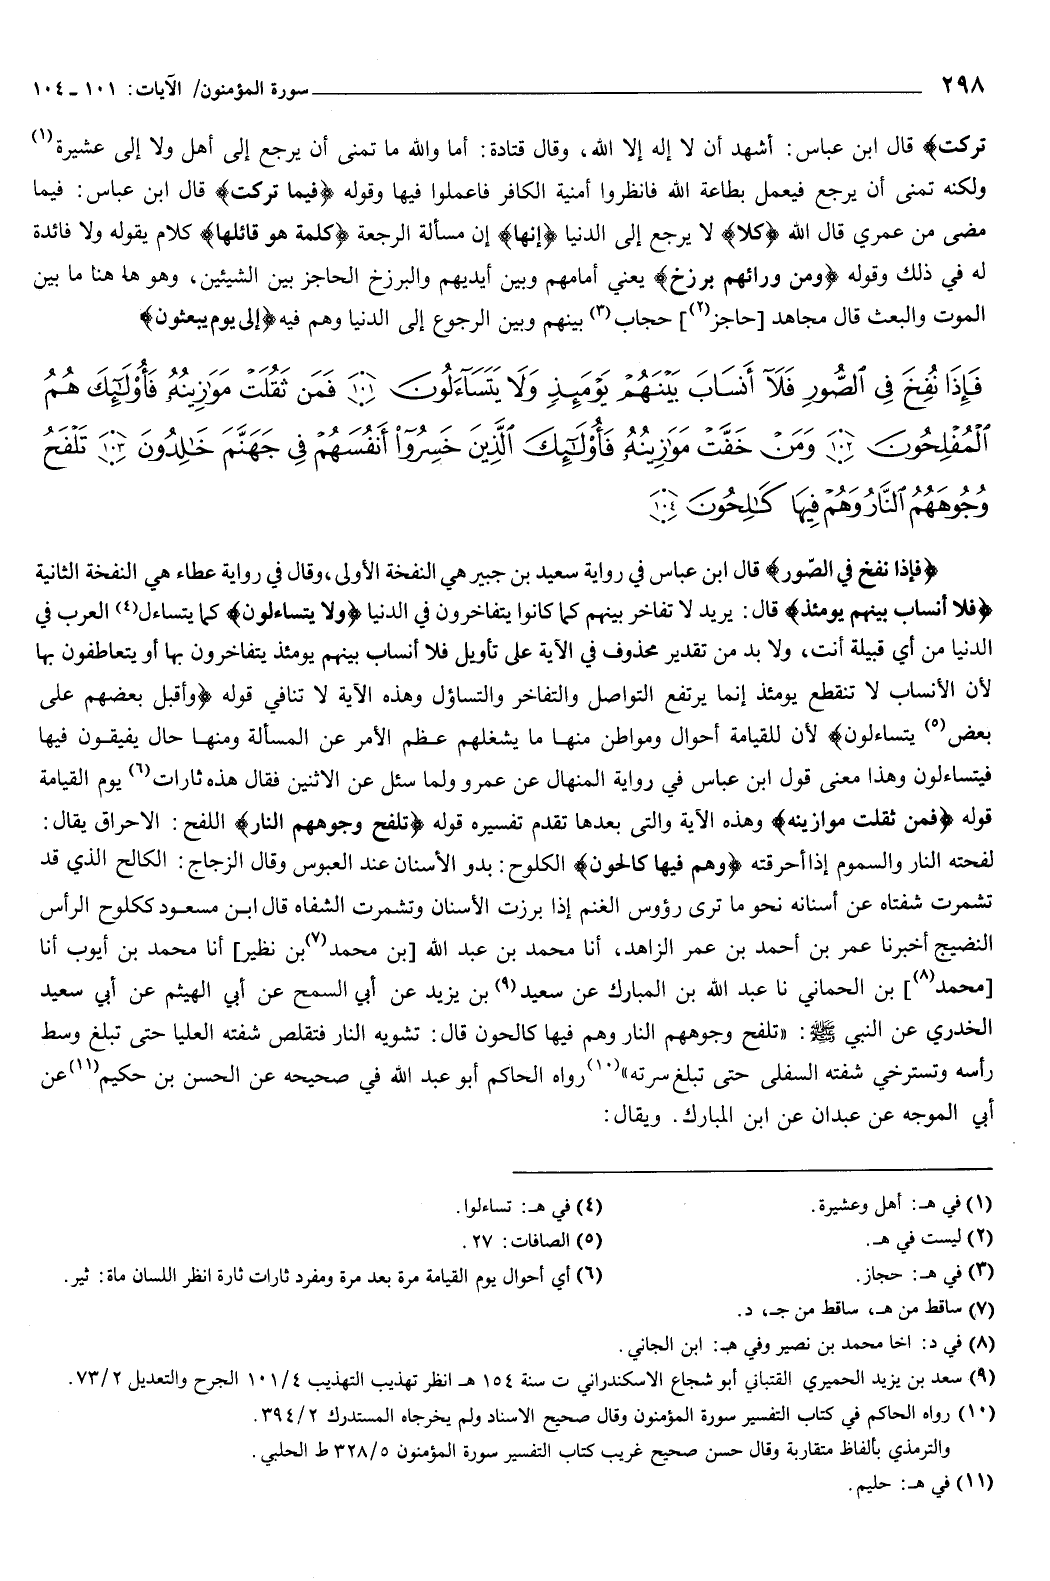 ٢٩٨ سورة المؤمنون/ الآيات: ١٠١ ـ ١٠٤
تركت﴾ قال ابن عباس: أشهد أن لا إله إلا الله، وقال قتادة: أما والله ما تمنى أن يرجع إلى أهل ولا إلى عشيرة(١)
ولكنه تمنى أن يرجع فيعمل بطاعة الله فانظروا أمنية الكافر فاعملوا فيها وقوله ﴿فيما تركت﴾ قال ابن عباس: فيما
مضى من عمري قال الله ﴿كلا﴾ لا يرجع إلى الدنيا ﴿إنها﴾ إن مسألة الرجعة ﴿كلمة هو قائلها﴾ كلام يقوله ولا فائدة
له في ذلك وقوله ﴿ومن ورائهم برزخ﴾ يعني أمامهم وبين أيديهم والبرزخ الحاجز بين الشيئين، وهو ها هنا ما بين
الموت والبعث قال مجاهد [حاجز(٢)] حجاب(٣) بينهم وبين الرجوع إلى الدنيا وهم فيه ﴿إلى يوم يبعثون﴾
فَإِذَا نُفِخَ فِي ٱلصُّورِ فَلَآ أَنسَابَ بَيْنَهُمْ يَوْمَئِذٍ وَلَا يَتَسَآءَلُونَ ١٠١ فَمَن ثَقُلَتْ مَوَٰزِينُهُۥ فَأُو۟لَـٰٓئِكَ هُمُ
ٱلْمُفْلِحُونَ ١٠٢ وَمَنْ خَفَّتْ مَوَٰزِينُهُۥ فَأُو۟لَـٰٓئِكَ ٱلَّذِينَ خَسِرُوٓا۟ أَنفُسَهُمْ فِي جَهَنَّمَ خَـٰلِدُونَ ١٠٣ تَلْفَحُ
وُجُوهَهُمُ ٱلنَّارُ وَهُمْ فِيهَا كَـٰلِحُونَ ١٠٤
﴿فإذا نفخ في الصّور﴾ قال ابن عباس في رواية سعيد بن جبير هي النفخة الأولى، وقال في رواية عطاء هي النفخة الثانية
﴿فلا أنساب بينهم يومئذ﴾ قال: يريد لا تفاخر بينهم كما كانوا يتفاخرون في الدنيا ﴿ولا يتساءلون﴾ كما يتساءل(٤) العرب في
الدنيا من أي قبيلة أنت، ولا بد من تقدير محذوف في الآية على تأويل فلا أنساب بينهم يومئذ يتفاخرون بها أو يتعاطفون بها
لأن الأنساب لا تنقطع يومئذ إنما يرتفع التواصل والتفاخر والتساؤل وهذه الآية لا تنافي قوله ﴿وأقبل بعضهم على
بعض(٥) يتساءلون﴾ لأن للقيامة أحوال ومواطن منها ما يشغلهم عظم الأمر عن المسألة ومنها حال يفيقون فيها
فيتساءلون وهذا معنى قول ابن عباس في رواية المنهال عن عمرو ولما سئل عن الاثنين فقال هذه ثارات(٦) يوم القيامة
قوله ﴿فمن ثقلت موازينه﴾ وهذه الآية والتى بعدها تقدم تفسيره قوله ﴿تلفح وجوههم النار﴾ اللفح: الاحراق يقال:
لفحته النار والسموم إذا أحرقته ﴿وهم فيها كالحون﴾ الكلوح: بدو الأسنان عند العبوس وقال الزجاج: الكالح الذي قد
تشمرت شفتاه عن أسنانه نحو ما ترى رؤوس الغنم إذا برزت الأسنان وتشمرت الشفاه قال ابن مسعود ككلوح الرأس
النضيج أخبرنا عمر بن أحمد بن عمر الزاهد، أنا محمد بن عبد الله [بن محمد(٧) بن نظير] أنا محمد بن أيوب أنا
[محمد(٨)] بن الحماني نا عبد الله بن المبارك عن سعيد(٩) بن يزيد عن أبي السمح عن أبي الهيثم عن أبي سعيد
الخدري عن النبي ﷺ: «تلفح وجوههم النار وهم فيها كالحون قال: تشويه النار فتقلص شفته العليا حتى تبلغ وسط
رأسه وتسترخي شفته السفلى حتى تبلغ سرته»(١٠) رواه الحاكم أبو عبد الله في صحيحه عن الحسن بن حكيم(١١) عن
أبي الموجه عن عبدان عن ابن المبارك. ويقال:
(١) في هـ: أهل وعشيرة.
(٢) ليست في هـ.
(٣) في هـ: حجاز.
(٤) في هـ: تساءلوا.
(٥) الصافات: ٢٧.
(٦) أي أحوال يوم القيامة مرة بعد مرة ومفرد ثارات ثارة انظر اللسان ماة: ثير.
(٧) ساقط من هـ، ساقط من جـ، د.
(٨) في د: اخا محمد بن نصير وفي هـ: ابن الجاني.
(٩) سعد بن يزيد الحميري القتباني أبو شجاع الاسكندراني ت سنة ١٥٤ هـ انظر تهذيب التهذيب ١٠١/٤ الجرح والتعديل ٧٣/٢.
(١٠) رواه الحاكم في كتاب التفسير سورة المؤمنون وقال صحيح الاسناد ولم يخرجاه المستدرك ٣٩٤/٢.
والترمذي بألفاظ متقاربة وقال حسن صحيح غريب كتاب التفسير سورة المؤمنون ٣٢٨/٥ ط الحلبي.
(١١) في هـ: حليم.